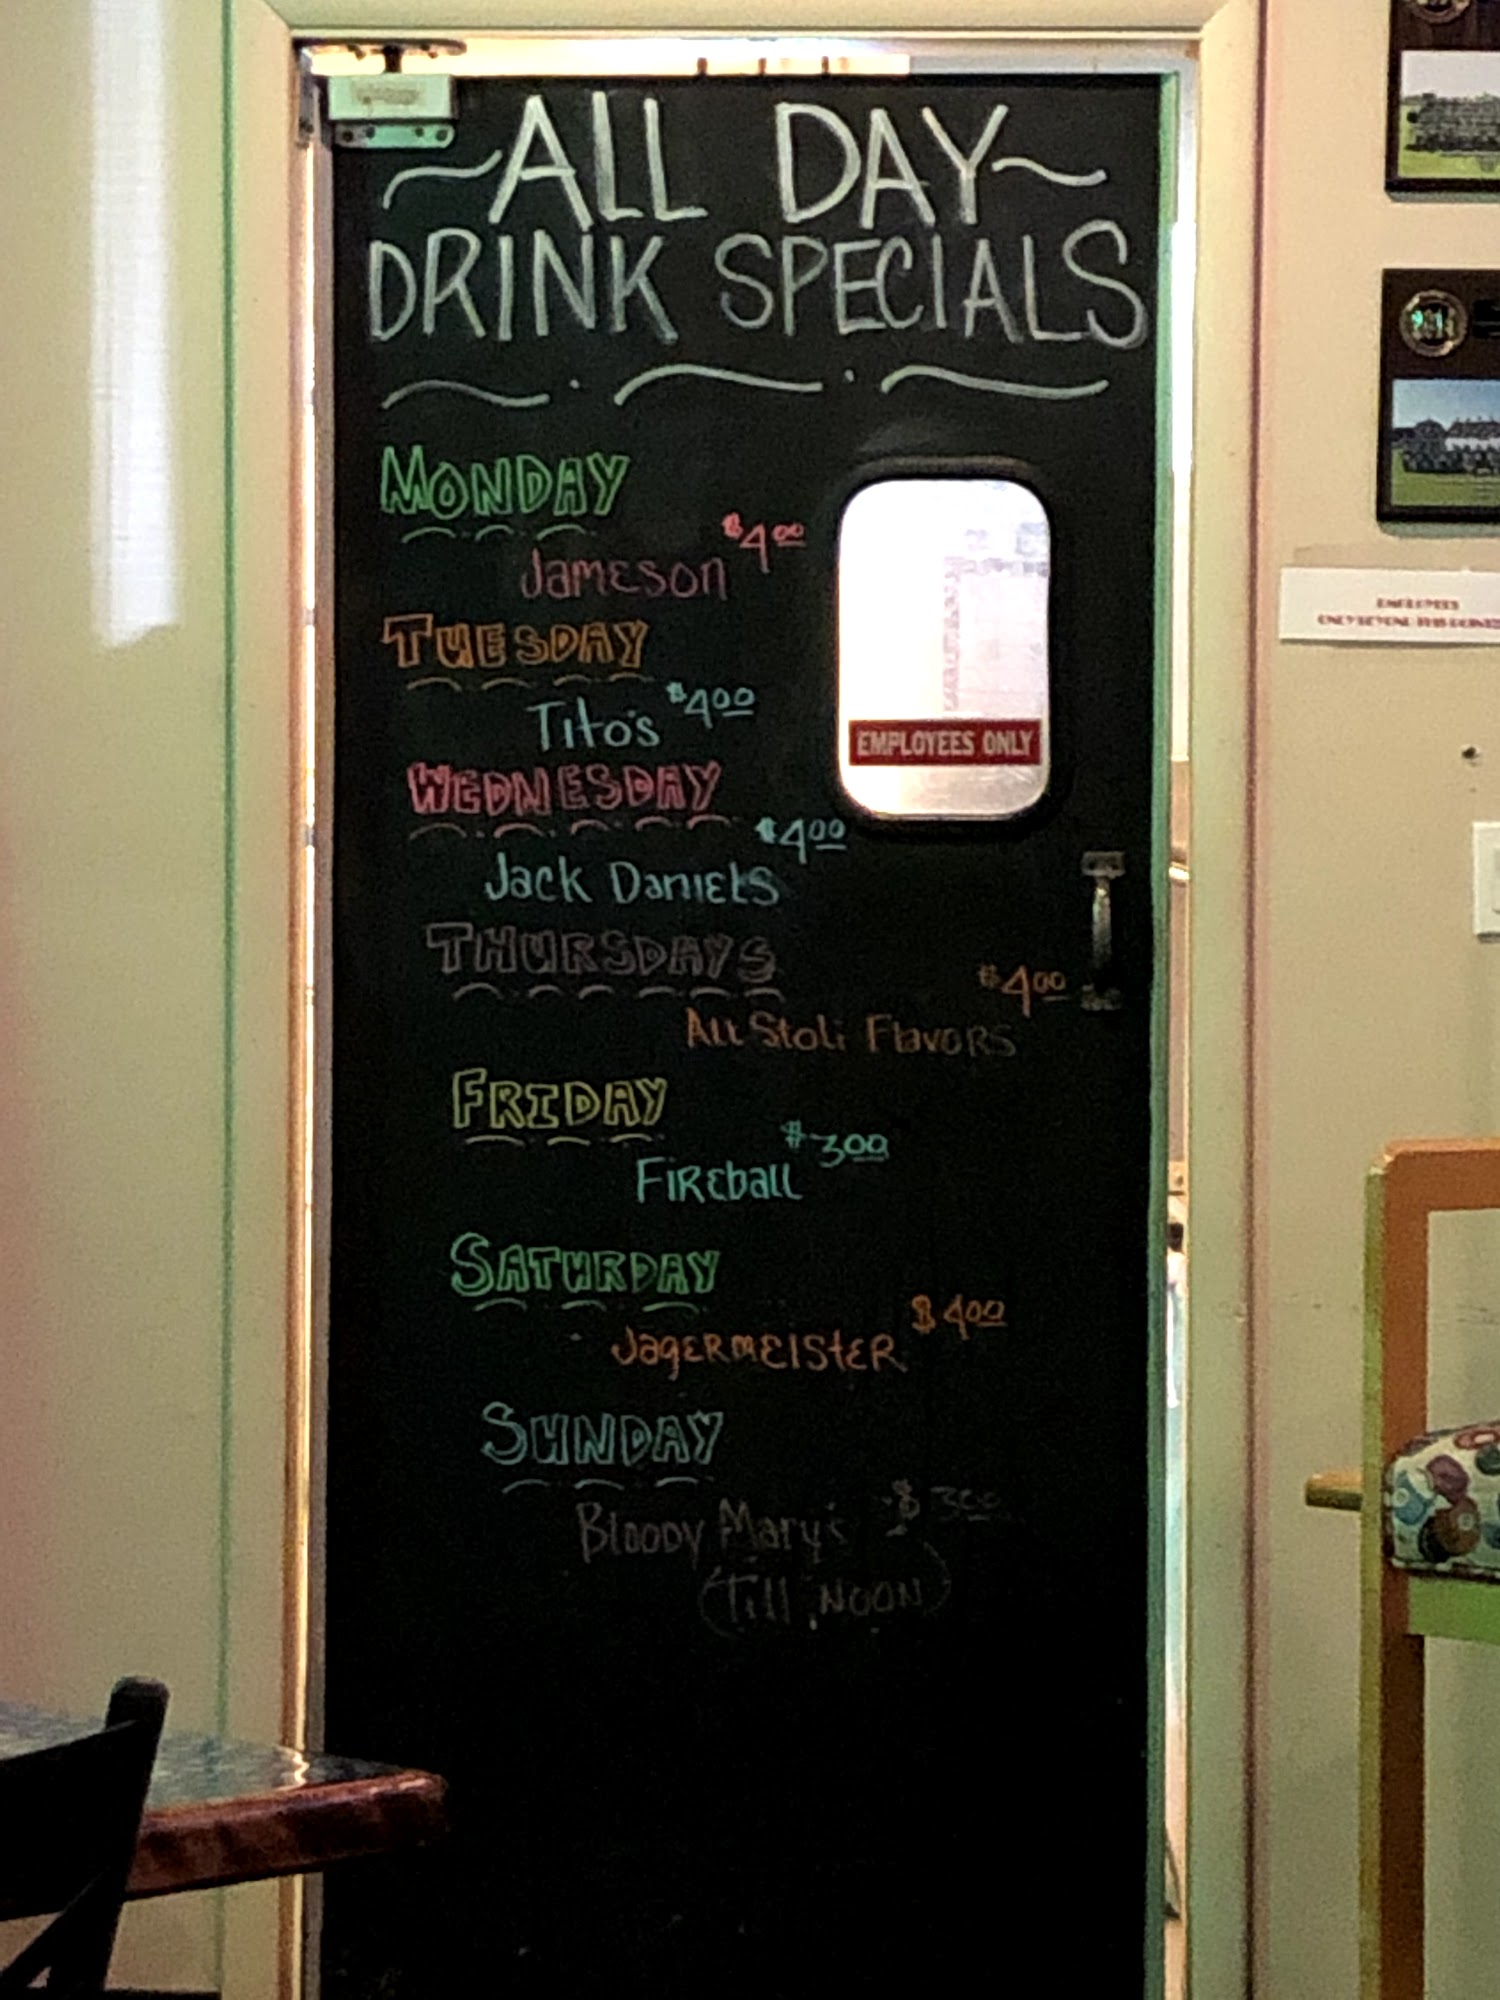 ~ALL DAY~
DRINK SPECIALS
MONDAY
Jameson $4.00
TUESDAY
Tito's $4.00
WEDNESDAY
Jack Daniels $4.00
THURSDAYS
All Stoli Flavors $4.00
FRIDAY
Fireball $3.00
SATURDAY
Jagermeister $4.00
SUNDAY
Bloody Mary's $3.00
(Till NOON)
EMPLOYEES ONLY
EMPLOYEES
ONLY BEYOND THIS POINT